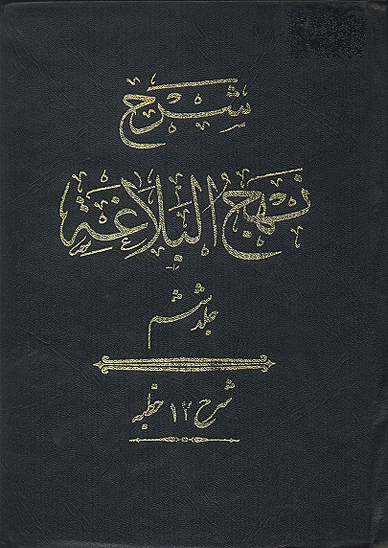 شرح
نهج البلاغة
جلد ششم
شرح ۱۲ خطبه